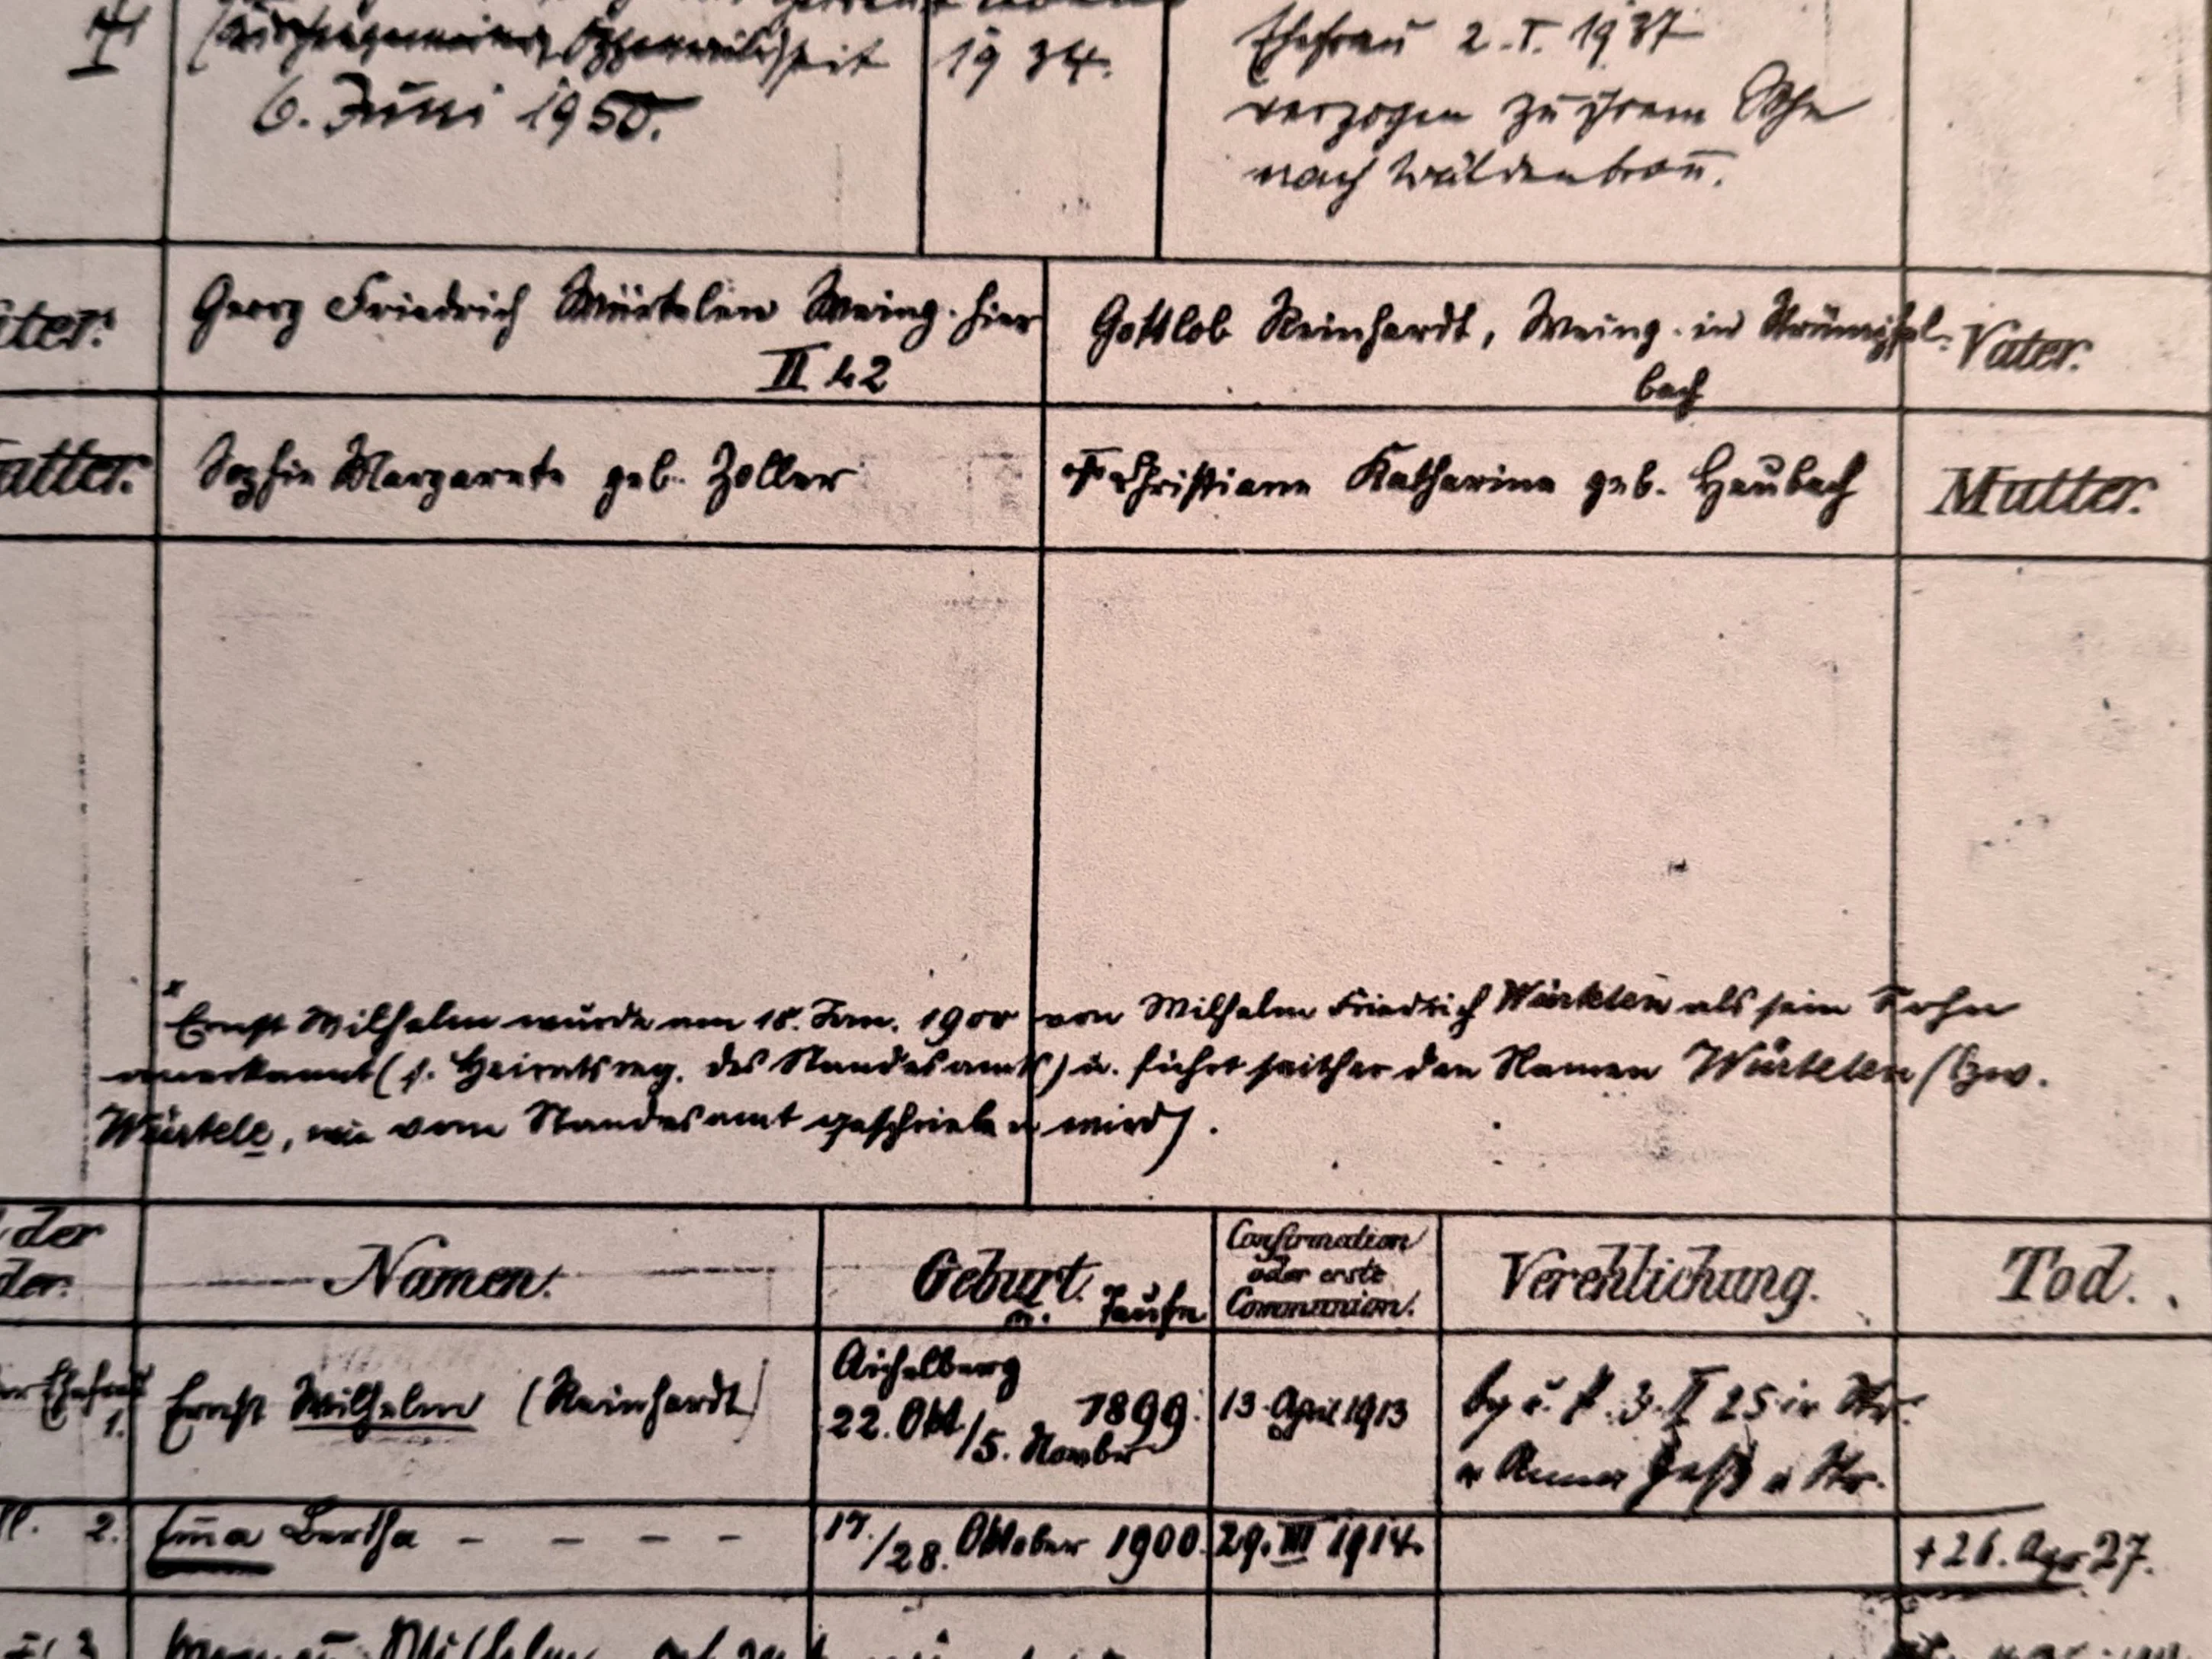 6. Juni 1950.
1934.
Ehefrau 2.I.1937
verzogen zu ihrem Sohn
nach Waldenbronn.
Georg Friedrich Würtelen Weing. hier
II 42
Gottlob Reinhardt, Weing. in Strümpfel-
bach
Vater.
Sophie Margarete geb. Zoller
Christiane Katharine geb. Heubach
Mutter.
x Ernst Wilhelm wurde am 18. Jan. 1900 von Wilhelm Friedrich Würtelen als sein Sohn
anerkannt (s. Heiratsreg. des Standesamts) u. führt seither den Namen Würtelen (bzw.
Würtele, wie vom Standesamt geschrieben wird).
der
Namen.
Geburt.
u. Taufe
Confirmation
oder erste
Communion.
Verehlichung.
Tod.
1.
Ernst Wilhelm (Reinhardt)
Aichelberg
22. Okt. 1899.
/5. November
13. April 1913
3. II 25 in Str.
Anna
2.
Em̄a Bertha - - - -
17./28. Oktober 1900.
29. III 1914.
+ 26. Apr 27.
3
Wilhelm